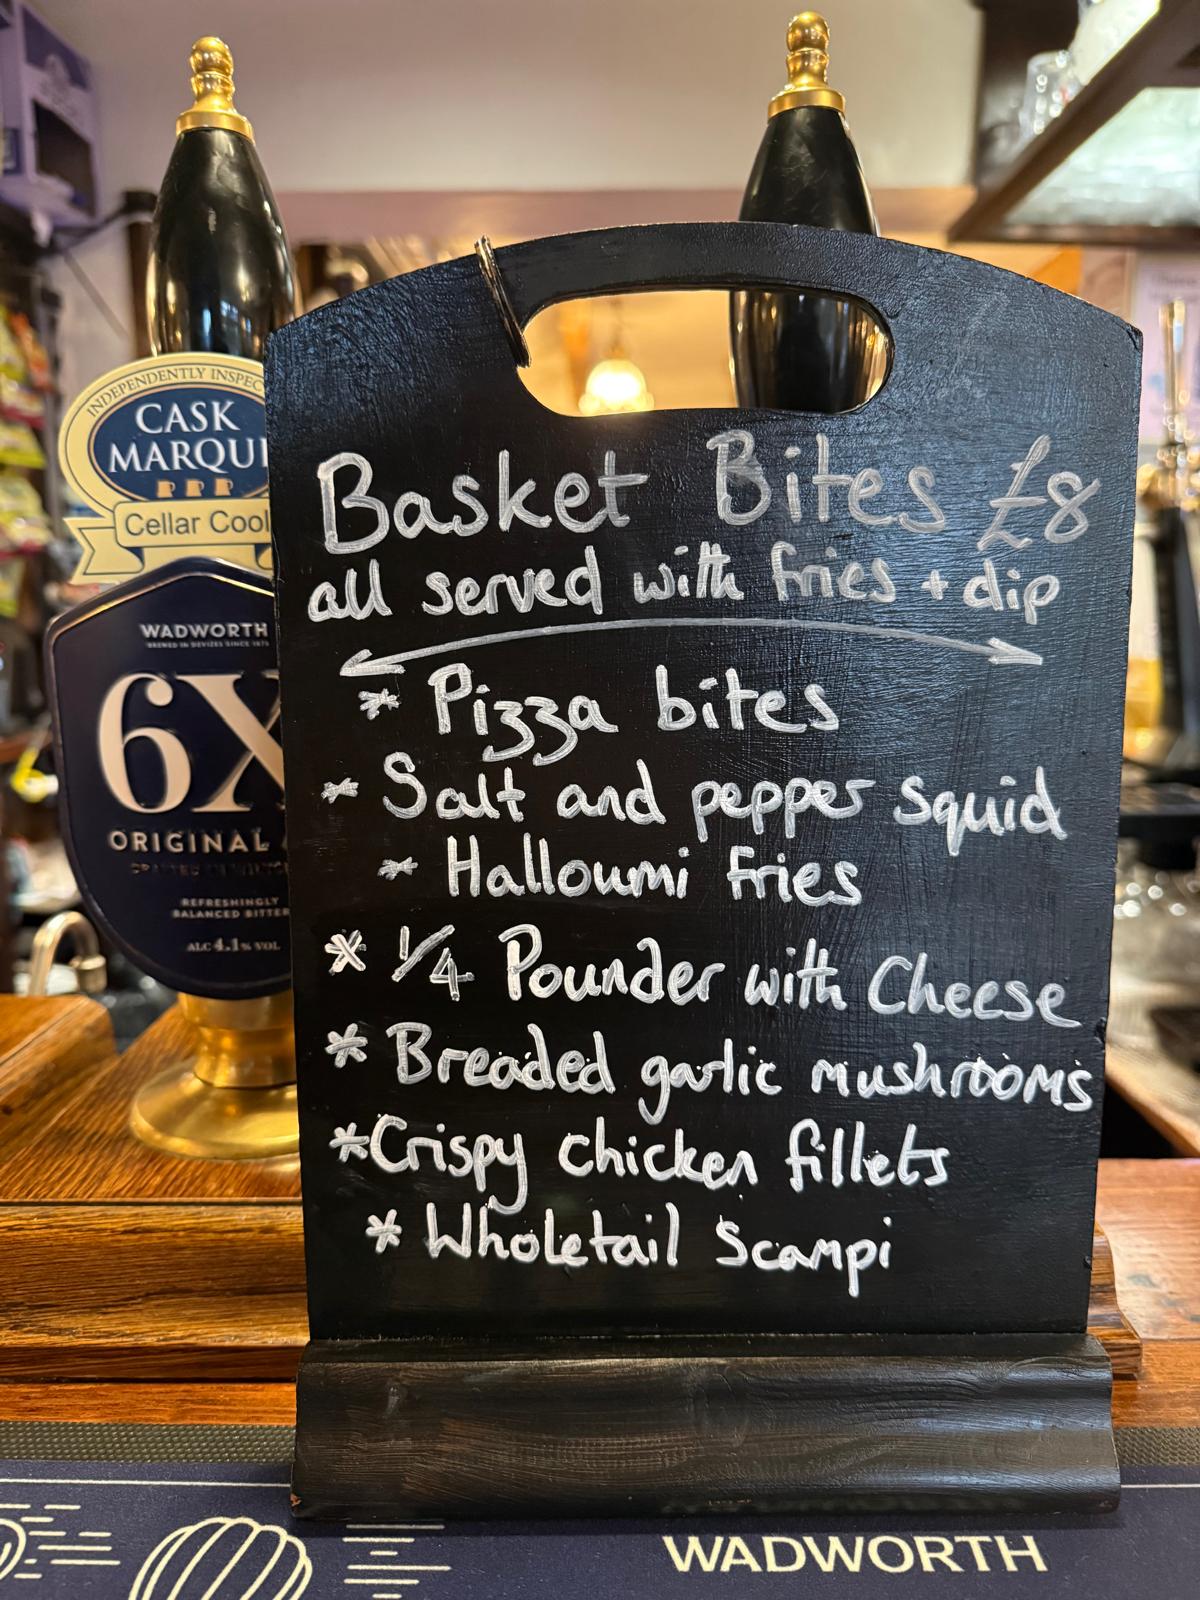 INDEPENDENTLY INSPEC
CASK
MARQU
Cellar Cool
WADWORTH
BREWED IN DEVIZES SINCE 1875
6X
ORIGINAL
REFRESHINGLY
BALANCED BITTER
ALC 4.1% VOL
Basket Bites £8
all served with fries + dip
* Pizza bites
* Salt and pepper squid
* Halloumi fries
* 1/4 Pounder with Cheese
* Breaded garlic mushrooms
* Crispy chicken fillets
* Wholetail Scampi
WADWORTH